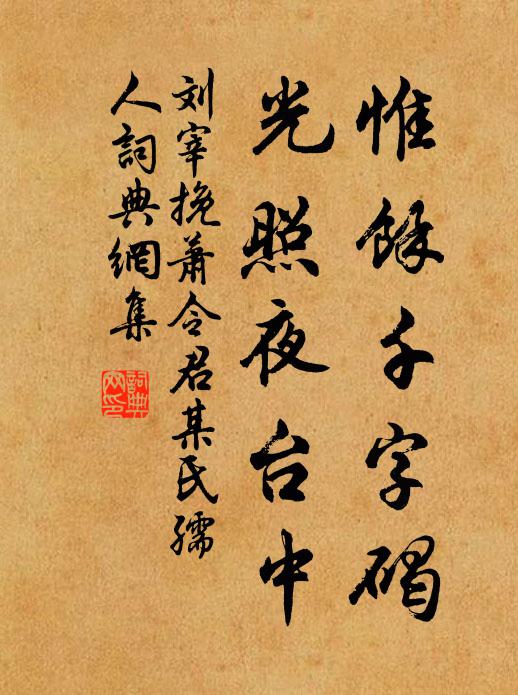 惟餘千字碣
光照夜台中
刘宰挽萧令君某氏孺
人詞典網集
詞典
网印